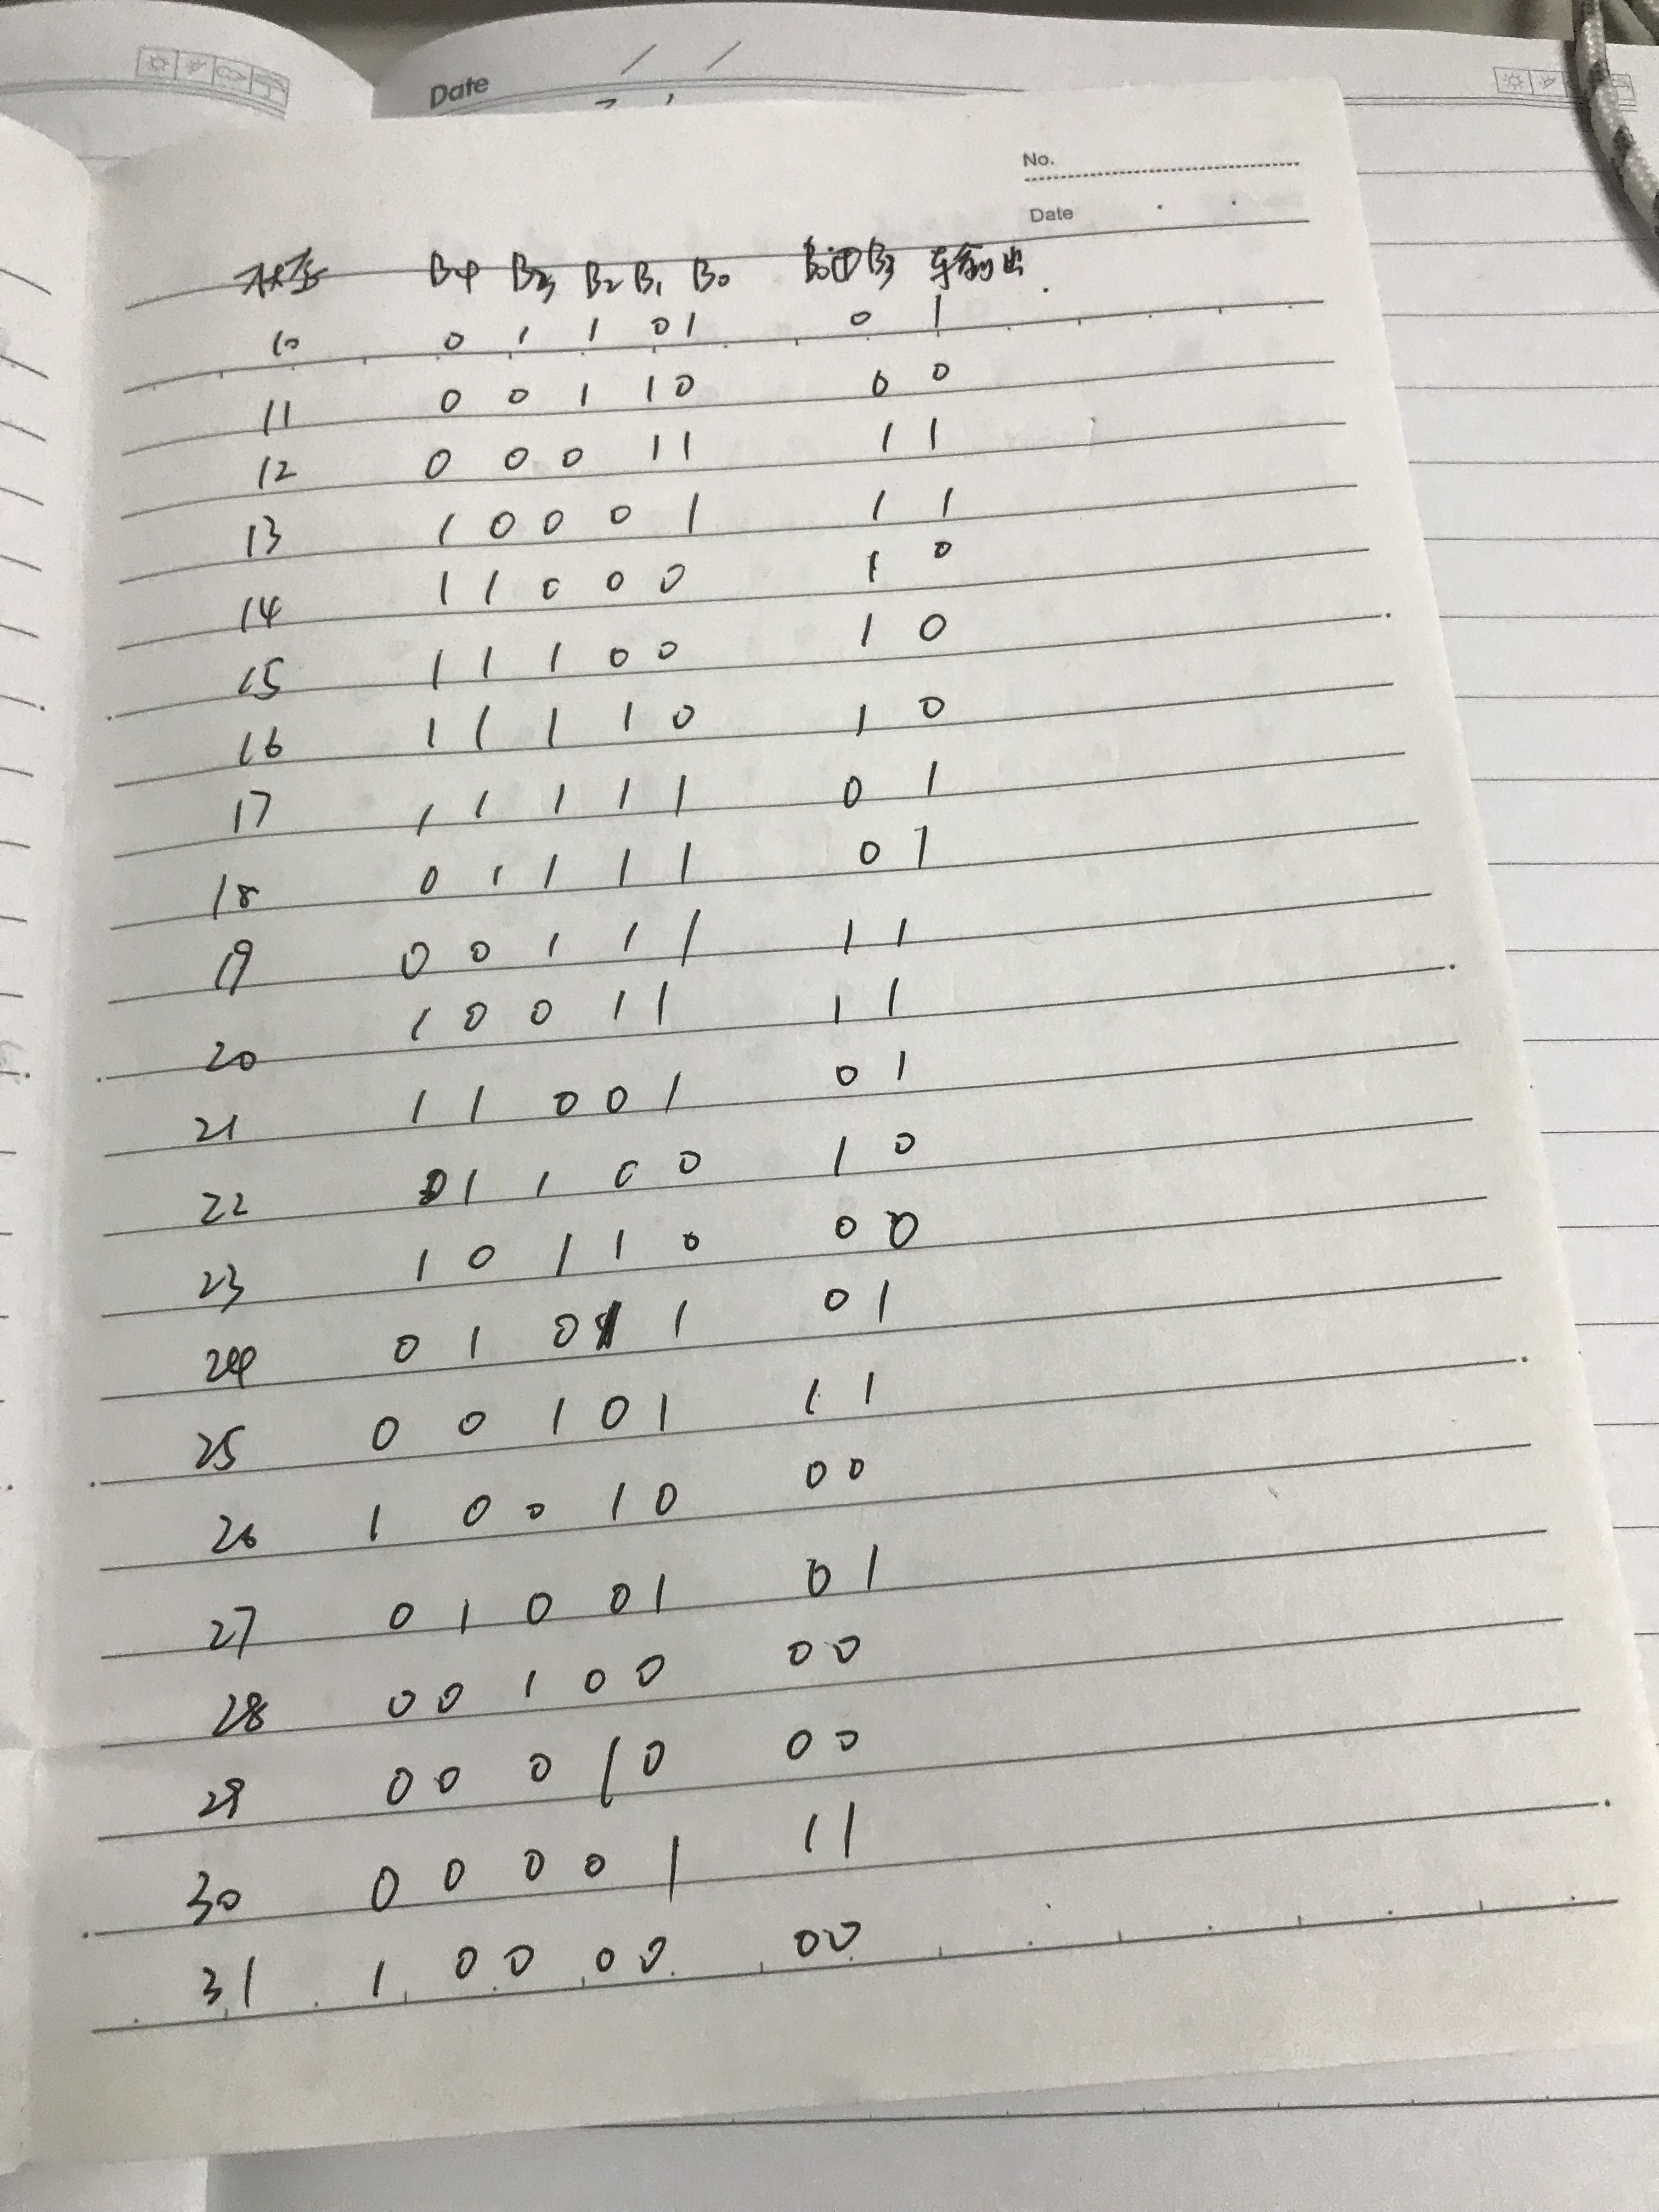 Date / /
No.
Date
状态 B4 B3 B2 B1 B0 B0⊕B3 输出
10 0 1 1 0 1 0 1
11 0 0 1 1 0 0 0
12 0 0 0 1 1 1 1
13 1 0 0 0 1 1 1
14 1 1 0 0 0 1 0
15 1 1 1 0 0 1 0
16 1 1 1 1 0 1 0
17 1 1 1 1 1 0 1
18 0 1 1 1 1 0 1
19 0 0 1 1 1 1 1
20 1 0 0 1 1 1 1
21 1 1 0 0 1 0 1
22 0 1 1 0 0 1 0
23 1 0 1 1 0 0 0
24 0 1 0 1 1 0 1
25 0 0 1 0 1 1 1
26 1 0 0 1 0 0 0
27 0 1 0 0 1 0 1
28 0 0 1 0 0 0 0
29 0 0 0 1 0 0 0
30 0 0 0 0 1 1 1
31 1 0 0 0 0 0 0